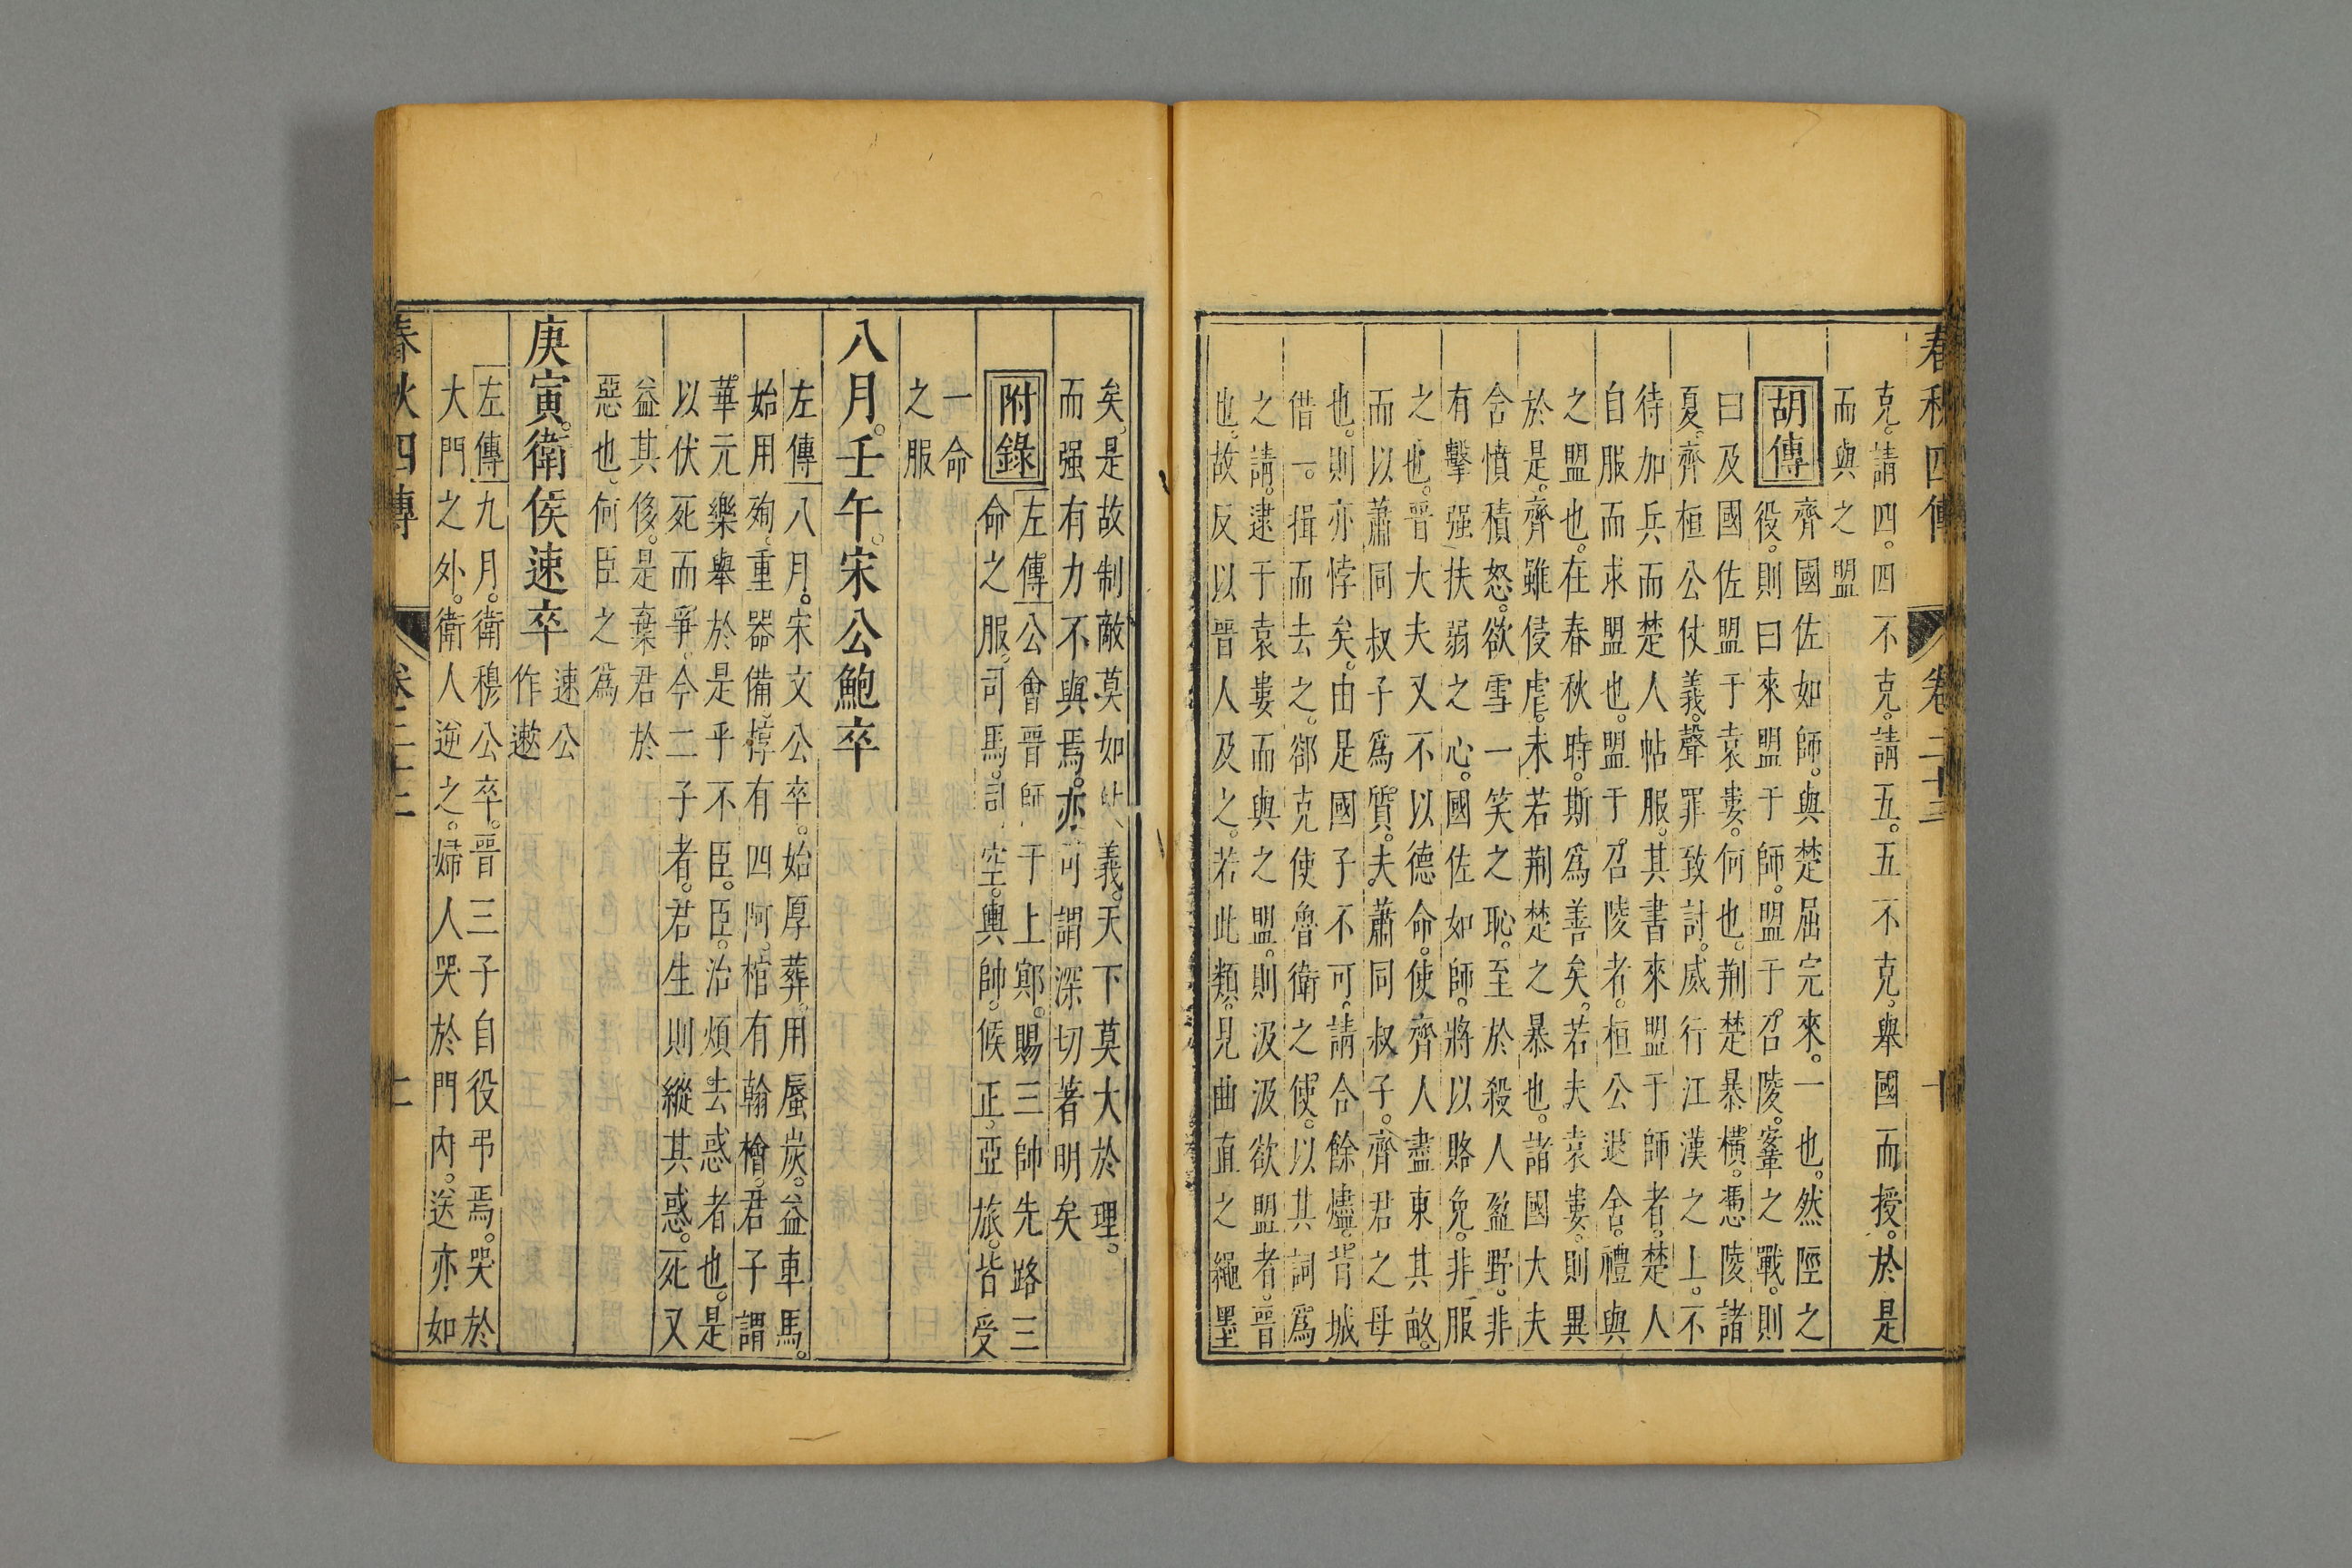 春秋四傳 卷二十三 十
克。請四。四不克。請五。五不克。舉國而授。於是
而與之盟
胡傳
齊國佐如師。與楚屈完來。一也。然陘之
役。則曰來盟于師。盟于召陵。鞌之戰。則
曰及國佐盟于袁婁。何也。荆楚暴橫。憑陵諸
夏。齊桓公仗義。聲罪致討。威行江漢之上。不
待加兵而楚人帖服。其書來盟于師者。楚人
自服而求盟也。盟于召陵者。桓公退舍。禮與
之盟也。在春秋時。斯為善矣。若夫袁婁。則異
於是。齊雖侵虐。未若荆楚之暴也。諸國大夫
含憤積怒。欲雪一笑之恥。至於殺人盈野。非
有擊强扶弱之心。國佐如師。將以賂免。非服
之也。晉大夫又不以德命。使齊人盡東其畝。
而以蕭同叔子為質。夫蕭同叔子。齊君之母
也。則亦悖矣。由是國子不可。請合餘燼。背城
借一。揖而去之。郤克使魯衛之使。以其詞為
之請。逮于袁婁而與之盟。則汲汲欲盟者。晉
也。故反以晉人及之。若此類。見曲直之繩墨
矣。是故制敵莫如 義。天下莫大於理。
而强有力不與焉。亦可謂深切著明矣
附錄
左傳公會晉師于上鄍。賜三帥先路三
命之服。司馬。司空。輿帥。候正。亞旅。皆受
一命
之服
八月。壬午。宋公鮑卒
左傳八月。宋文公卒。始厚葬。用蜃炭。益車馬。
始用殉。重器備。椁有四阿。棺有翰檜。君子謂
華元樂舉於是乎不臣。臣。治煩去惑者也。是
以伏死而爭。今二子者。君生則縱其惑。死又
益其侈。是棄君於
惡也。何臣之為
庚寅。衛侯速卒
速公
作遫
左傳九月。衛穆公卒。晉三子自役弔焉。哭於
大門之外。衛人逆之。婦人哭於門內。送亦如
春秋四傳 卷二十三 十一